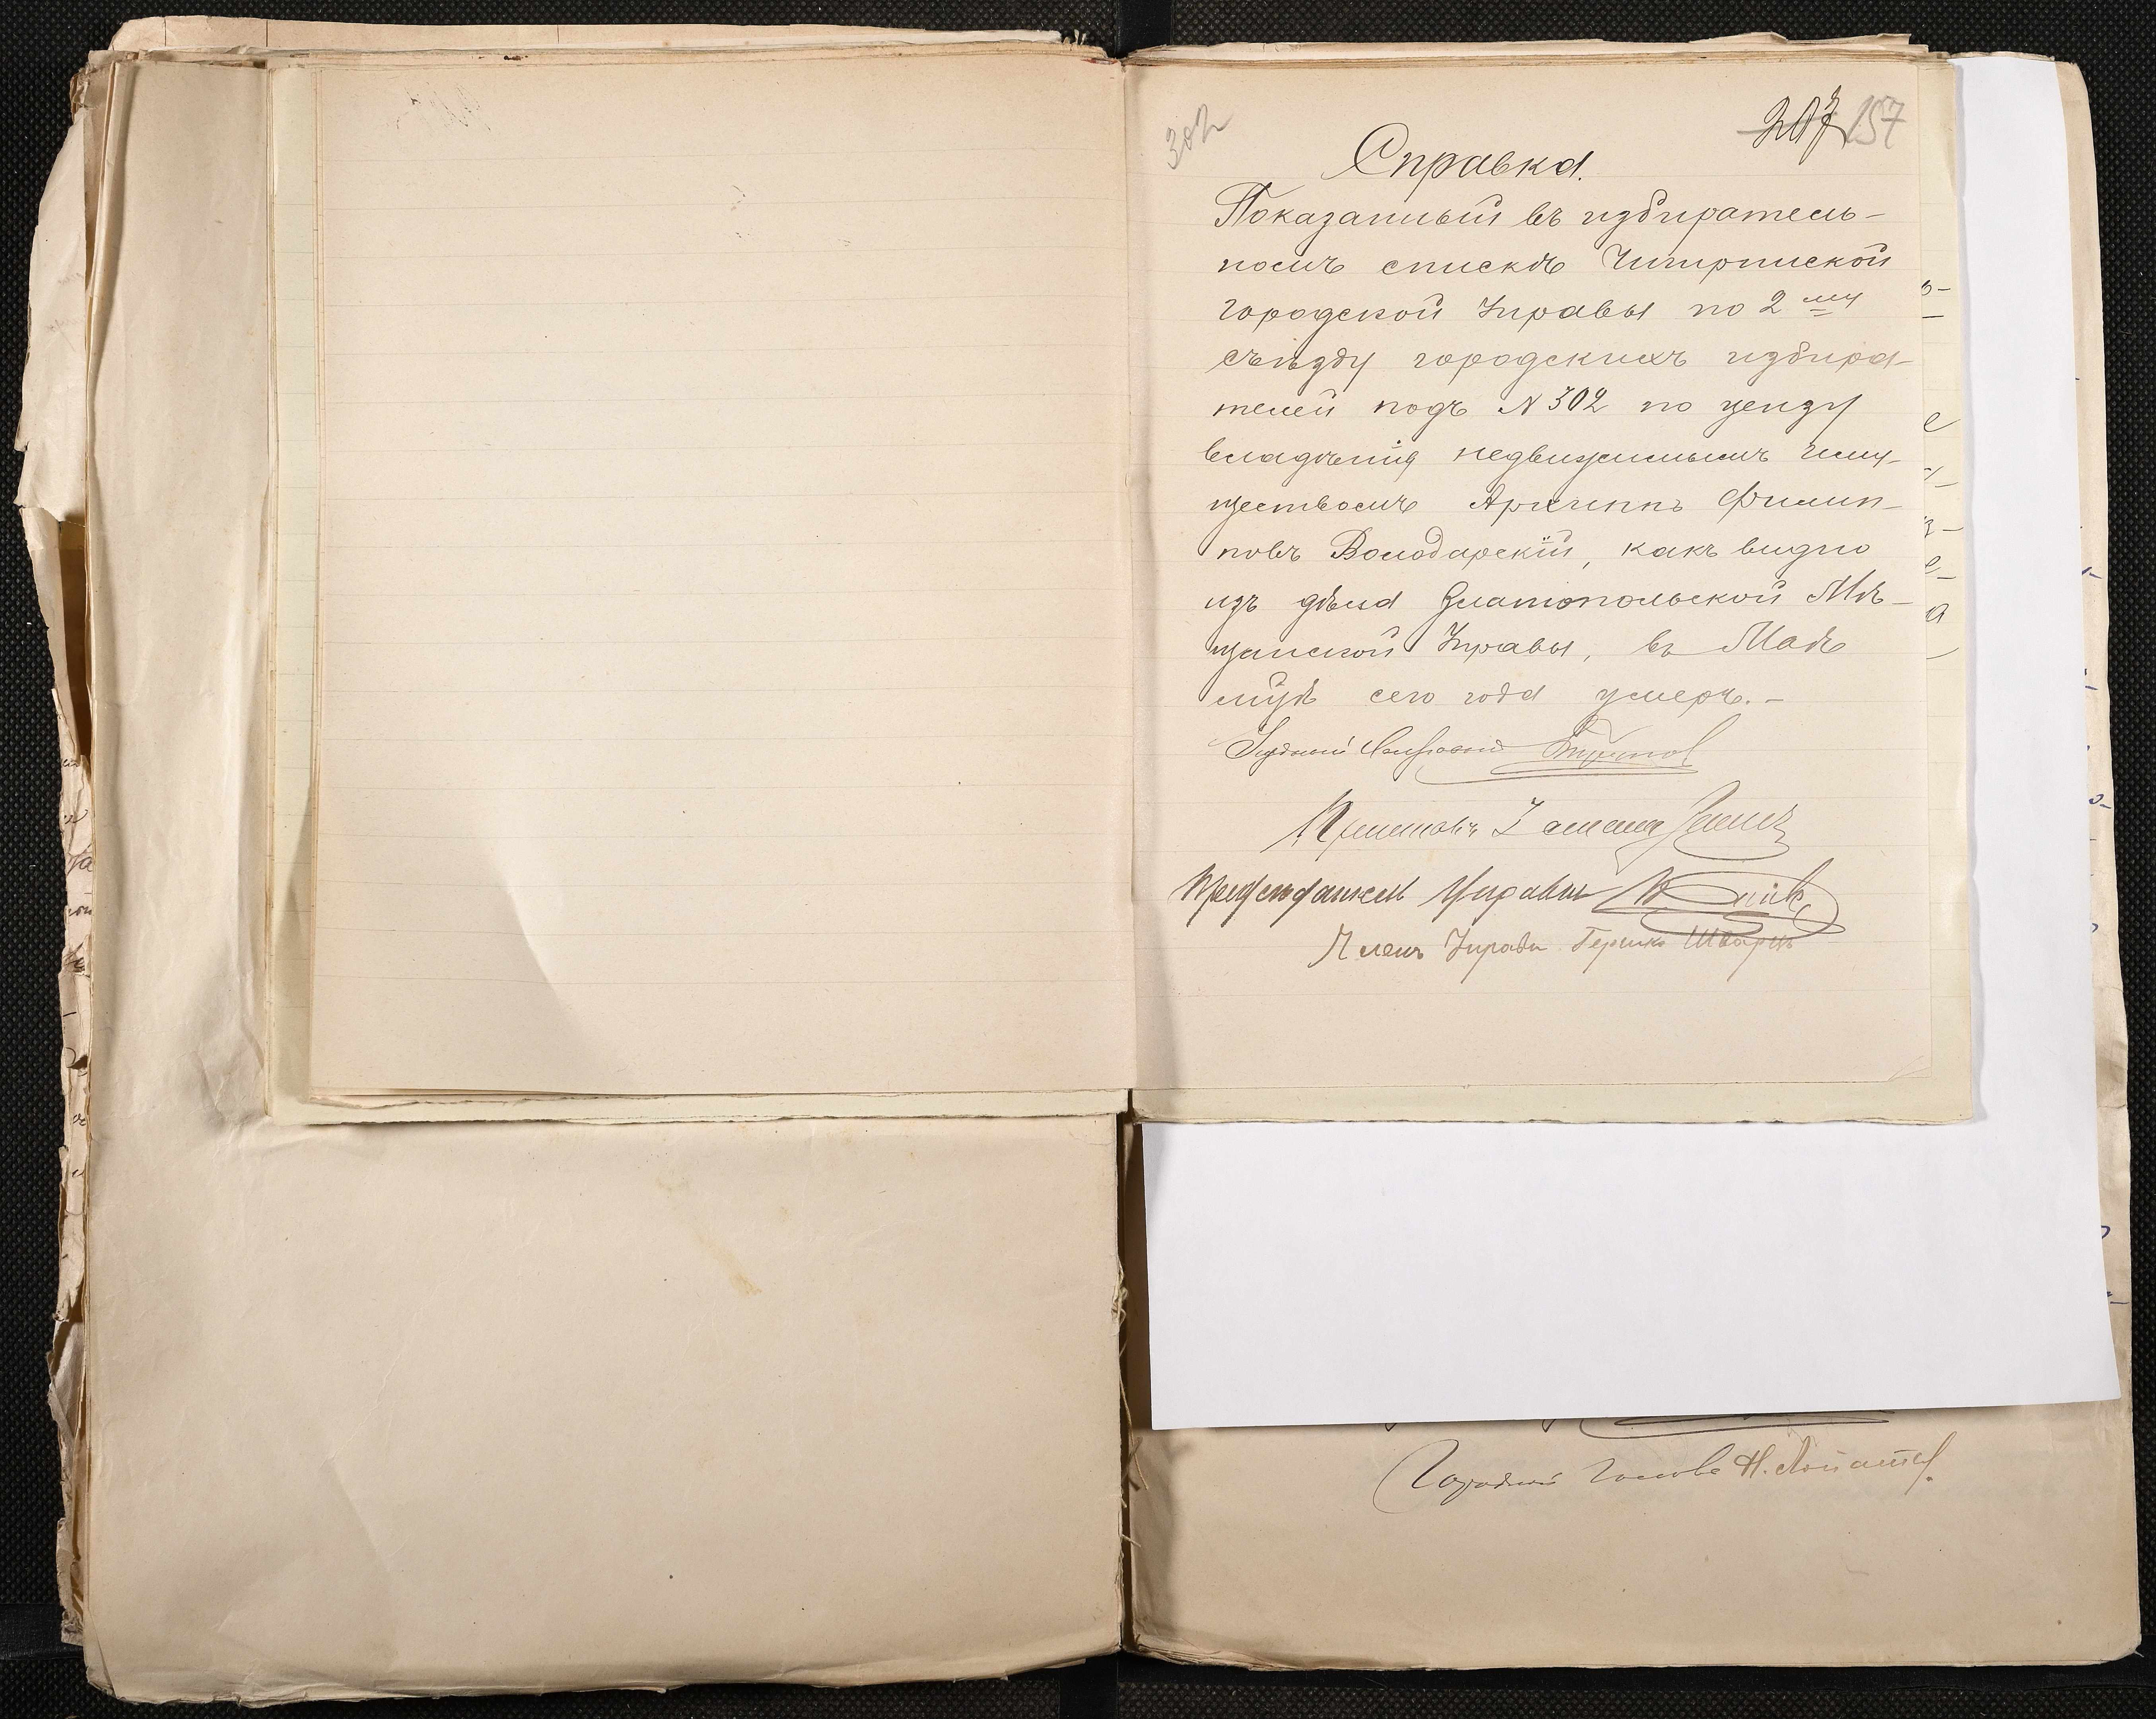 302
207 157
Справка.
Показанный въ избиратель-
номъ спискѣ Чигиринской
городской Управы по 2 му
съѣзду городскихъ избира-
телей подъ N 302 по цензу
владѣнія недвижимымъ иму-
ществомъ Архиппъ Филип-
повъ Володарскій, какъ видно
изъ дѣла Златопольской Мѣ-
щанской Управы, въ Маѣ
мцѣ сего года умеръ.-
Уѣздный
Предсѣдатель Управы
Членъ Управы Гершко Шварцъ
Городской Голова Н.